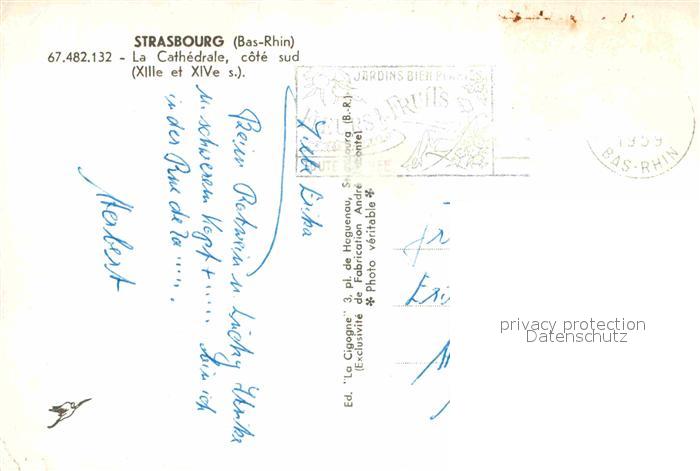 STRASBOURG (Bas-Rhin)
67.482.132 - La Cathédrale, côté sud
(XIIIe et XIVe s.).
JARDINS BIEN
FRUITS
1959
BAS-RHIN
Liebe Erika
Beim Rotwein u. Lucky Strike
m. schwerem Kopf + ..... bin ich
in der Rue de la .....
Herbert
Ed. "La Cigogne" 3, pl. de Haguenau, Strasbourg (B.-R.)
(Exclusivité de Fabrication André
* Photo véritable *
privacy protection
Datenschutz